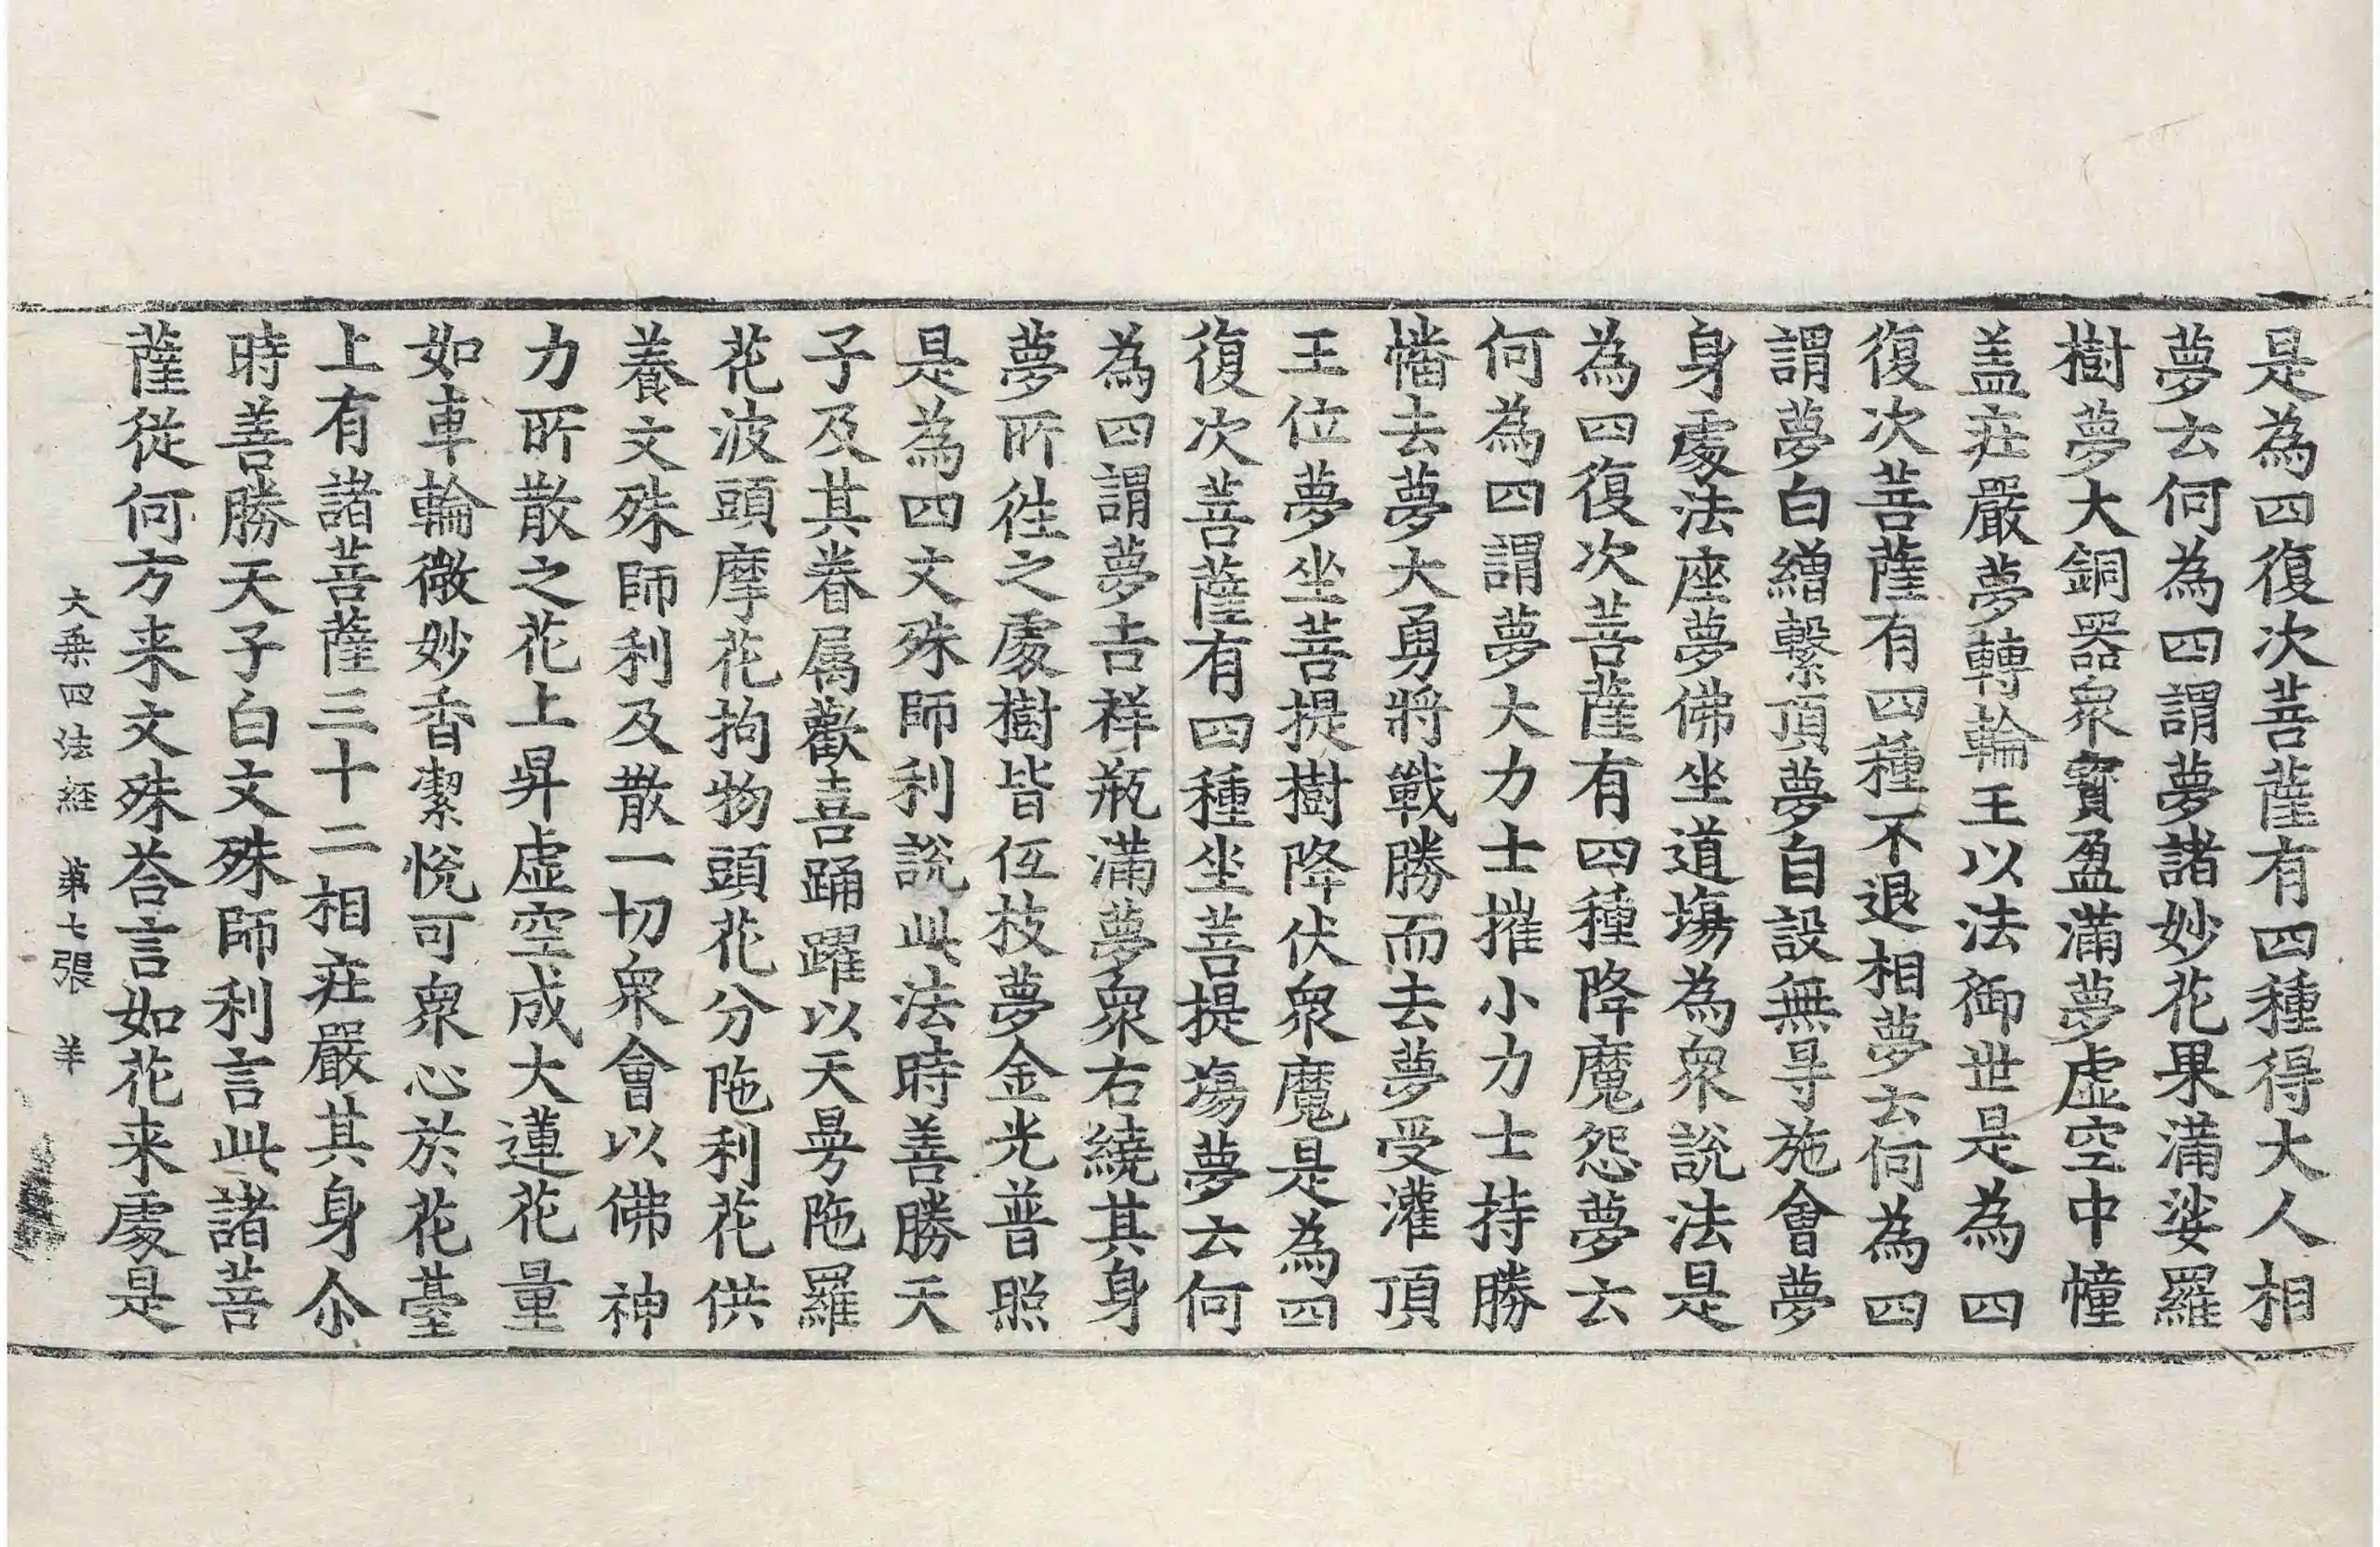 是為四復次菩薩有四種得大人相
夢云何為四謂夢諸妙花果滿娑羅
樹夢大銅器衆寶盈滿夢虛空中幢
盖莊嚴夢轉輪王以法御世是為四
復次菩薩有四種不退相夢云何為四
謂夢白繒繫頂夢自設無㝵施會夢
身處法座夢佛坐道場為衆說法是
為四復次菩薩有四種降魔怨夢云
何為四謂夢大力士摧小力士持勝
幡去夢大勇將戰勝而去夢受灌頂
王位夢坐菩提樹降伏衆魔是為四
復次菩薩有四種坐菩提場夢云何
為四謂夢吉祥瓶滿夢衆右繞其身
夢所徃之處樹皆伍枝夢金光普照
是為四文殊師利說此法時善勝天
子及其眷属歡喜踊躍以天曼陁羅
花波頭摩花拘物頭花分陁利花供
養文殊師利及散一切衆會以佛神
力所散之花上昇虛空成大蓮花量
如車輪微妙香潔悅可衆心於花臺
上有諸菩薩三十二相莊嚴其身尒
時善勝天子白文殊師利言此諸菩
薩從何方来文殊荅言如花来處是
大乘四法經 苐七張 羊